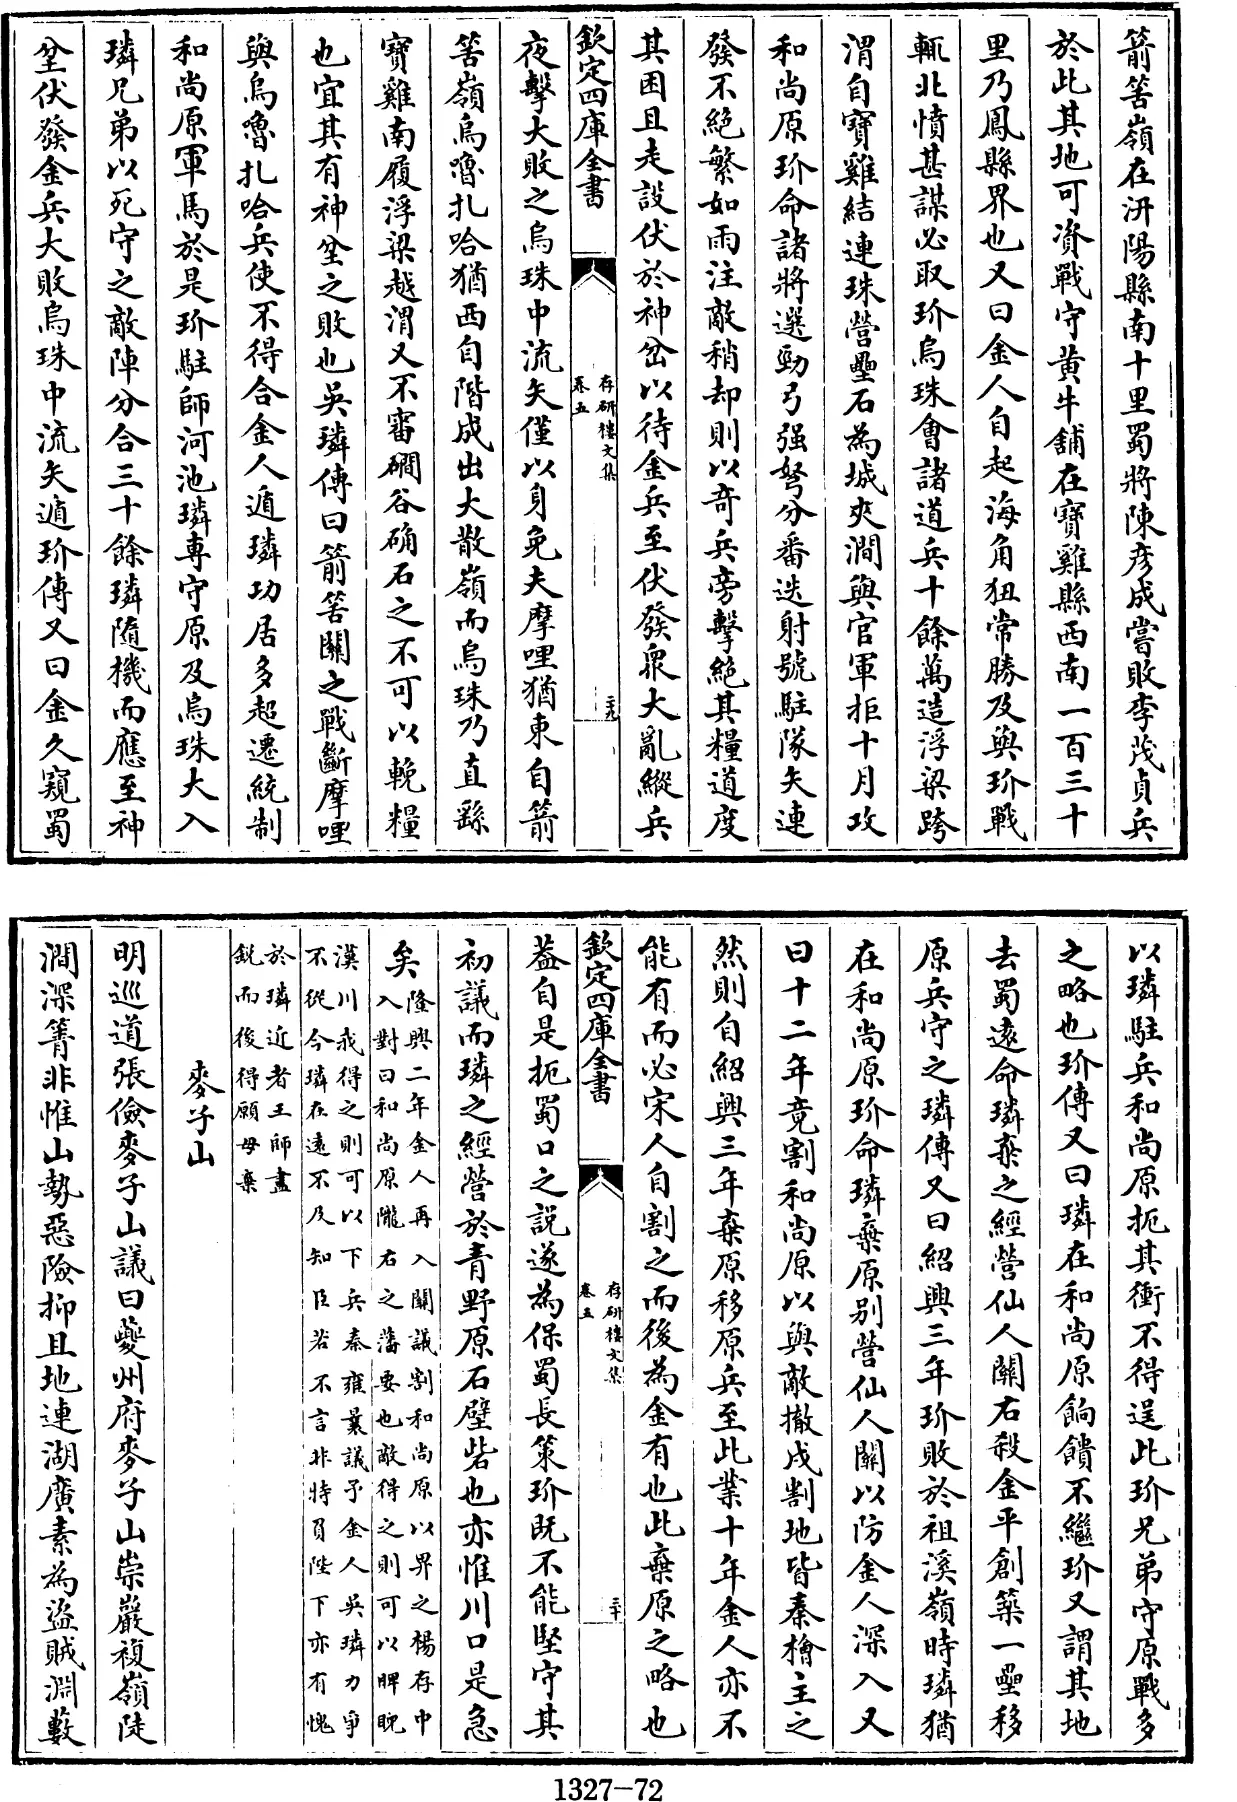 箭筈嶺在汧陽縣南十里蜀將陳彥成嘗敗李茂貞兵
於此其地可資戰守黃牛舖在寶雞縣西南一百三十
里乃鳳縣界也又曰金人自起海角狃常勝及與玠戰
輒北憤甚謀必取玠烏珠會諸道兵十餘萬造浮梁跨
渭自寶雞結連珠營壘石為城夾澗與官軍拒十月攻
和尚原玠命諸將選勁弓强弩分番迭射號駐隊矢連
發不絶繁如雨注敵稍却則以奇兵旁擊絶其糧道度
其困且走設伏於神岔以待金兵至伏發衆大亂縱兵
欽定四庫全書
存研樓文集
卷五
二十九
夜擊大敗之烏珠中流矢僅以身免夫摩哩猶東自箭
筈嶺烏嚕扎哈猶西自階成出大散嶺而烏珠乃直繇
寶雞南履浮梁越渭又不審磵谷确石之不可以輓糧
也宜其有神坌之敗也吳璘傳曰箭筈關之戰斷摩哩
與烏嚕扎哈兵使不得合金人遁璘功居多超遷統制
和尚原軍馬於是玠駐師河池璘專守原及烏珠大入
璘兄弟以死守之敵陣分合三十餘璘隨機而應至神
坌伏發金兵大敗烏珠中流矢遁玠傳又曰金久窺蜀
以璘駐兵和尚原扼其衝不得逞此玠兄弟守原戰多
之略也玠傳又曰璘在和尚原餉饋不繼玠又謂其地
去蜀遠命璘棄之經營仙人關右殺金平創築一壘移
原兵守之璘傳又曰紹興三年玠敗於祖溪嶺時璘猶
在和尚原玠命璘棄原别營仙人關以防金人深入又
曰十二年竟割和尚原以與敵撤戍割地皆秦檜主之
然則自紹興三年棄原移原兵至此業十年金人亦不
能有而必宋人自割之而後為金有也此棄原之略也
欽定四庫全書
存研樓文集
卷五
三十
葢自是扼蜀口之説遂為保蜀長策玠既不能堅守其
初議而璘之經營於青野原石壁砦也亦惟川口是急
矣
隆興二年金人再入關議割和尚原以畀之楊存中
入對曰和尚原隴右之藩要也敵得之則可以睥睨
漢川我得之則可以下兵秦雍曩議予金人吳璘力爭
不從今璘在遠不及知臣若不言非特負陛下亦有愧
於璘近者王師盡
鋭而後得願毋棄
麥子山
明巡道張儉麥子山議曰夔州府麥子山崇巖複嶺陡
澗深箐非惟山勢惡險抑且地連湖廣素為盜賊淵藪
1327-72